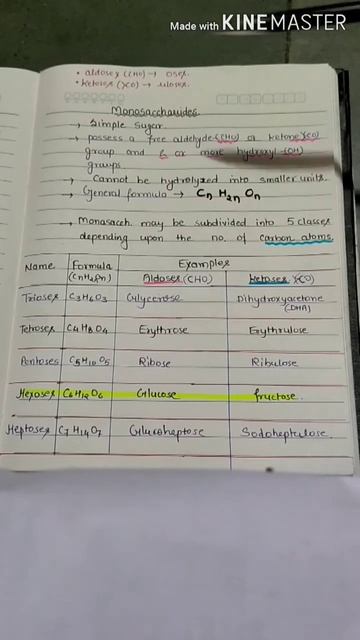 Made with KINEMASTER
• aldoses (CHO) → oses.
• ketoses (>CO) → uloses.
Monosaccharides
→ Simple Sugar.
→ possess a free aldehyde (CHO) or ketone (>CO)
group and 2 or more hydroxyl (OH)
groups
→ Cannot be hydrolyzed into smaller units.
→ General formula → Cn H2n On
→ Monosacch. may be subdivided into 5 classes
depending upon the no. of carbon atoms.
Name Formula (CnH2nOn) Examples
Aldoses (CHO) Ketoses (>CO)
Trioses C3H6O3 Glycerose Dihydroxyacetone (DHA)
Tetroses C4H8O4 Erythrose Erythrulose
Pentoses C5H10O5 Ribose Ribulose
Hexoses C6H12O6 Glucose fructose.
Heptoses C7H14O7 Glucoheptose Sodoheptulose.